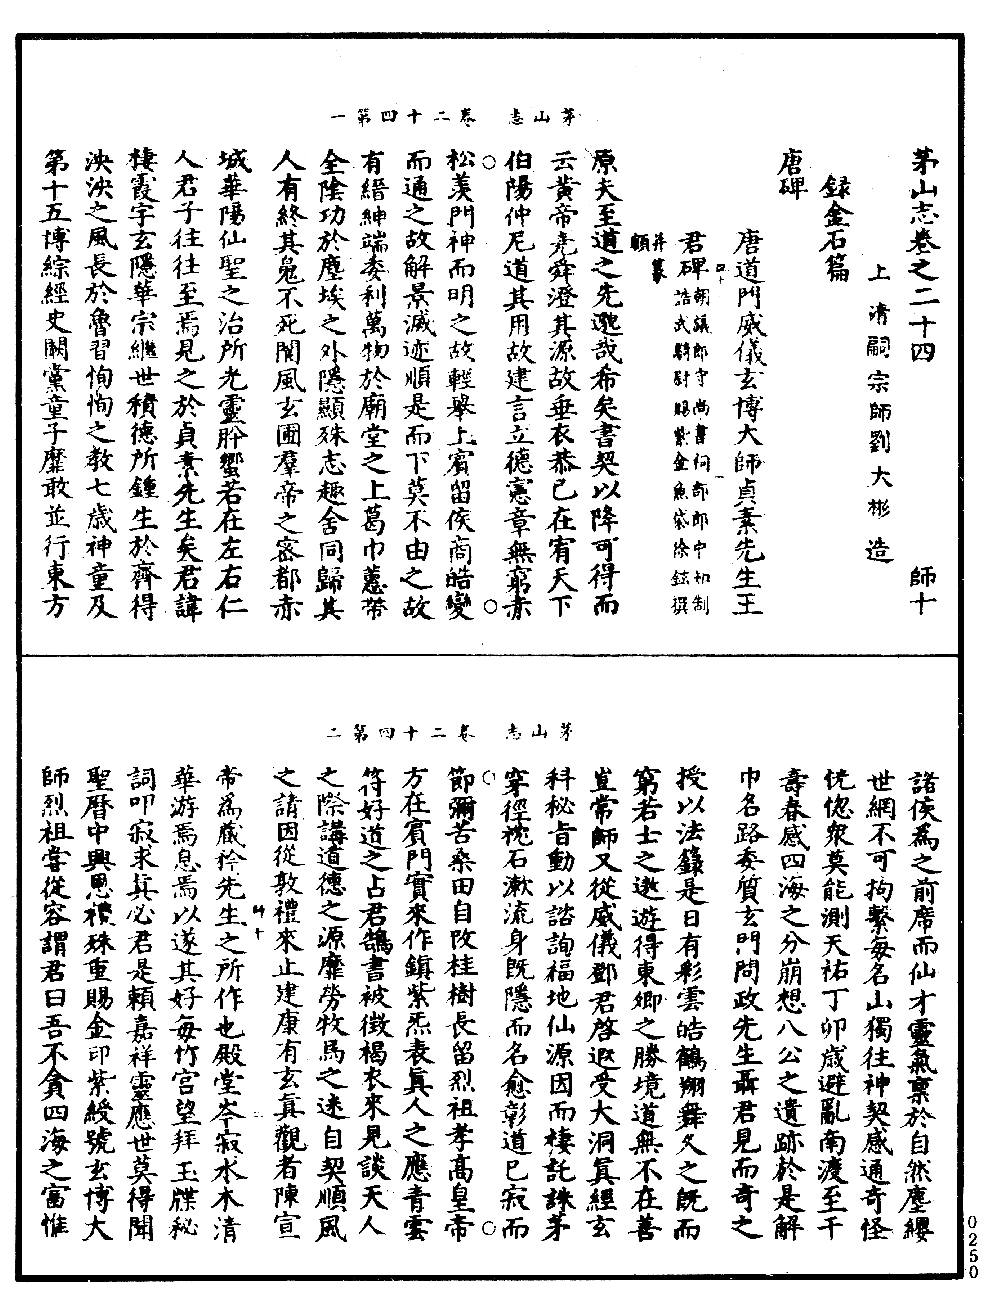 茅山志卷之二十四　師十
上清嗣宗師劉大彬造
録金石篇
唐碑
唐道門威儀玄博大師貞素先生王
君碑
朝議郎守尚書祠部郎中知制
誥武騎尉賜紫金魚袋徐鉉撰
并篆
額
原夫至道之先邈哉希矣書契以降可得而
云黃帝堯舜澄其源故垂衣恭己在宥天下
伯陽仲尼道其用故建言立德憲章無窮赤
松羡門神而明之故輕舉上賓留侯商皓變
而通之故解景滅迹順是而下莫不由之故
有縉紳端委利萬物於廟堂之上葛巾蕙帶
全陰功於塵埃之外隱顯殊志趣舍同歸其
人有終其鬼不死閬風玄圃羣帝之密都赤
城華陽仙聖之治所光靈肸蠁若在左右仁
人君子往往至焉見之於貞素先生矣君諱
棲霞字玄隱華宗繼世積德所鍾生於齊得
泱泱之風長於魯習恂恂之教七歲神童及
第十五博綜經史闕黨童子靡敢並行東方
茅山志　卷二十四第一
諸侯為之前席而仙才靈氣稟於自然塵纓
世網不可拘繫每名山獨往神契感通奇怪
恍惚衆莫能測天祐丁卯歲避亂南渡至于
壽春感四海之分崩想八公之遺跡於是解
巾名路委質玄門問政先生聶君見而奇之
授以法籙是日有彩雲皓鶴翔舞久之既而
窮若士之遨遊得東鄉之勝境道無不在善
豈常師又從威儀鄧君啓遐受大洞真經玄
科秘旨動以諮詢福地仙源因而棲託誅茅
穿徑枕石漱流身既隱而名愈彰道已寂而
節彌苦桑田自改桂樹長留烈祖孝高皇帝
方在賓門實來作鎮紫炁表真人之應青雲
符好道之占君鵠書被徵褐衣來見談天人
之際講道德之源靡勞牧馬之迷自契順風
之請因從敦禮來止建康有玄真觀者陳宣
帝為臧矜先生之所作也殿堂岑寂水木清
華游焉息焉以遂其好每竹宮望拜玉牒秘
詞叩寂求真必君是賴嘉祥靈應世莫得聞
聖曆中興恩禮殊重賜金印紫綬號玄博大
師烈祖嘗從容謂君曰吾不貪四海之富惟
茅山志　卷二十四第二
0250